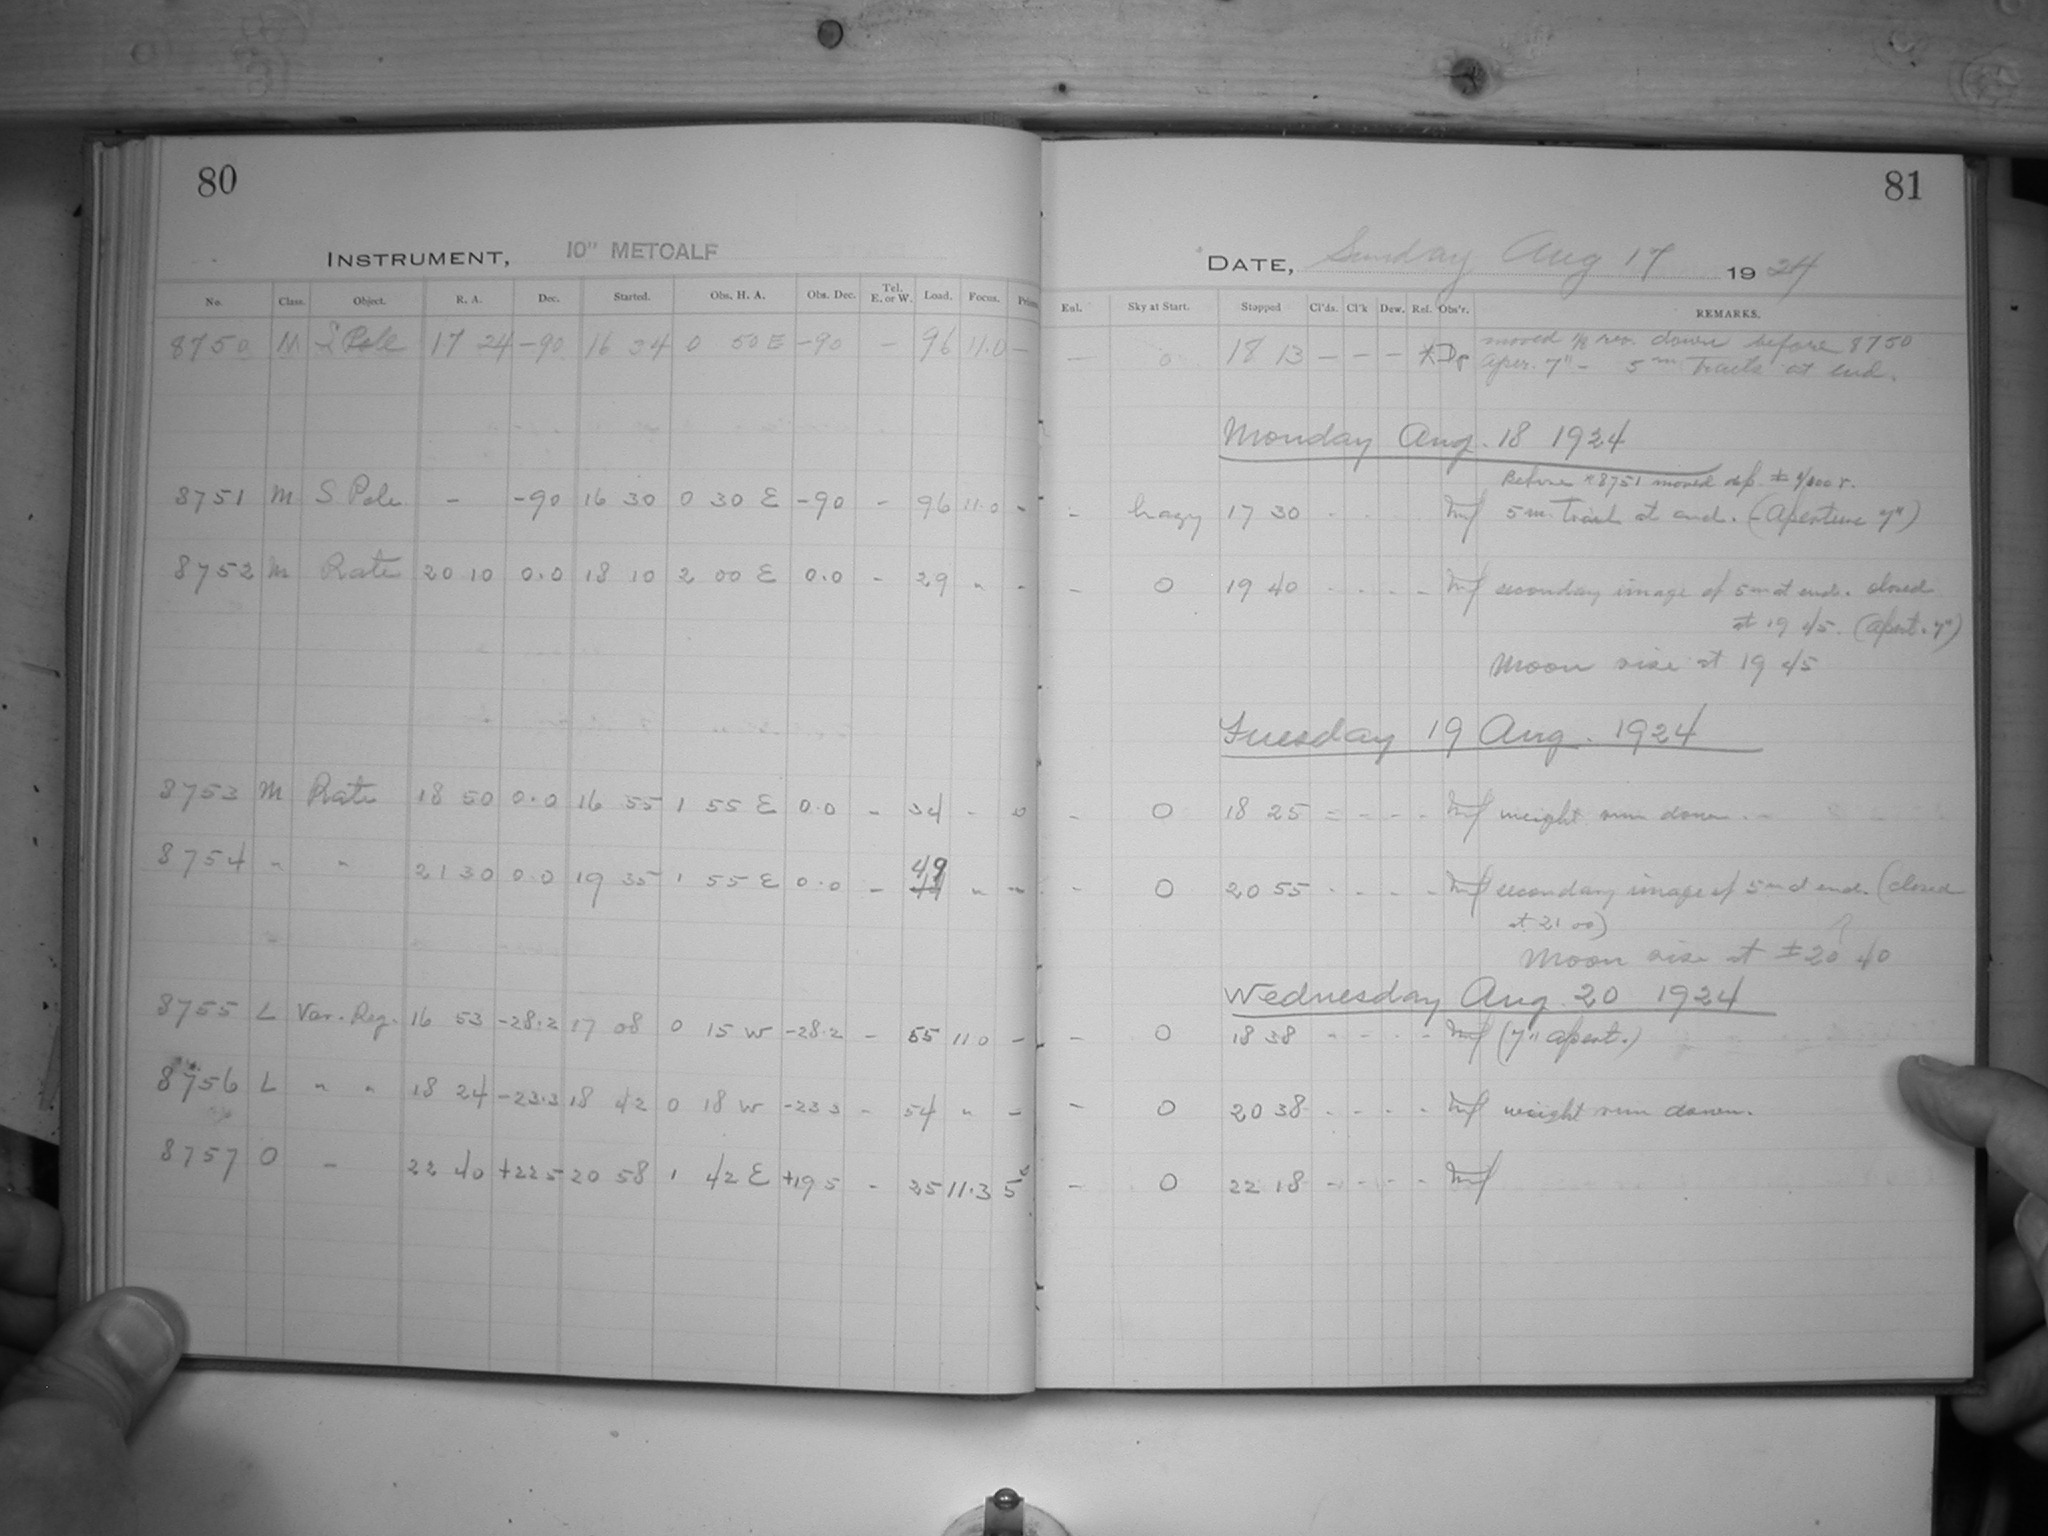 80
INSTRUMENT, 10" METCALF
No. Class. Object. R. A. Dec. Started. Obs. H. A. Obs. Dec. Tel. E. or W. Load. Focus.
8750 M S Pole 17 24 -90 16 34 0 50 E -90 - 96 11.0 -
8751 M S Pole - -90 16 30 0 30 E -90 - 96 11.0 -
8752 M Rate 20 10 0.0 18 10 2 00 E 0.0 - 29 " -
8753 M Rate 18 50 0.0 16 55 1 55 E 0.0 - 34 -
8754 " " 21 30 0.0 19 35 1 55 E 0.0 - 49 " -
8755 L Var. Reg. 16 53 -28.2 17 08 0 15 W -28.2 - 55 11.0 -
8756 L " " 18 24 -23.3 18 42 0 18 W -23 3 - 54 " -
8757 O - 22 40 +22 5 20 58 1 42 E +19 5 - 25 11.3 5
81
DATE, Sunday Aug 17 1924
Enl. Sky at Start. Stopped Cl'ds. Cl'k Dew. Rel. Obs'r. REMARKS.
moved rev. down before 8750
- 0 18 13 - - -
aper. 7" - 5m Trails at end.
Monday Aug. 18 1924
Before 8751 moved
- hazy 17 30 5 m. Trail at end. (Aperture 7")
- 0 19 40 secondary image of 5m at end. closed
at 19 45. (Apert. 7")
Moon rise at 19 45
Tuesday 19 Aug. 1924
- 0 18 25 - - - - weight run down.
- 0 20 55 secondary image of 5m at end. (closed
at 21 00)
Moon rise at ± 20 40
Wednesday Aug. 20 1924
- 0 18 38 - - - - (7" apert.)
- 0 20 38 - - - - weight run down.
- 0 22 18 - - - -